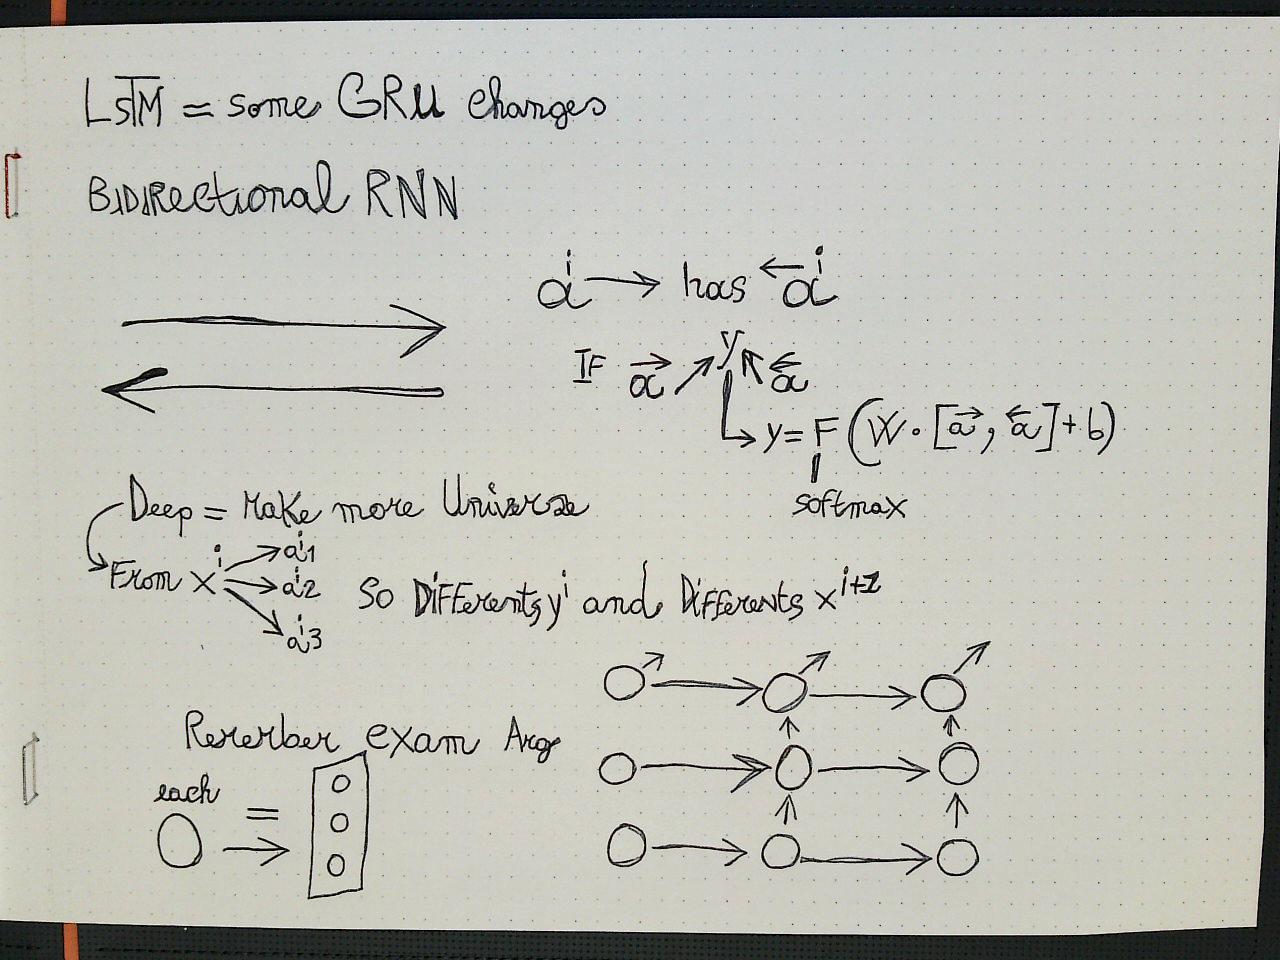 LSTM = some GRU changes
BIDIRectional RNN
a^i → has ←a^i
IF →a ↗ y ↖ ←a
y = F (W · [→a, ←a] + b)
softmax
Deep = Make more Universe
From x^i → a^i1
a^i2
a^i3
So DiFFerents y^i and DiFFerents x^i+1
Rererber exam Arg
each
=